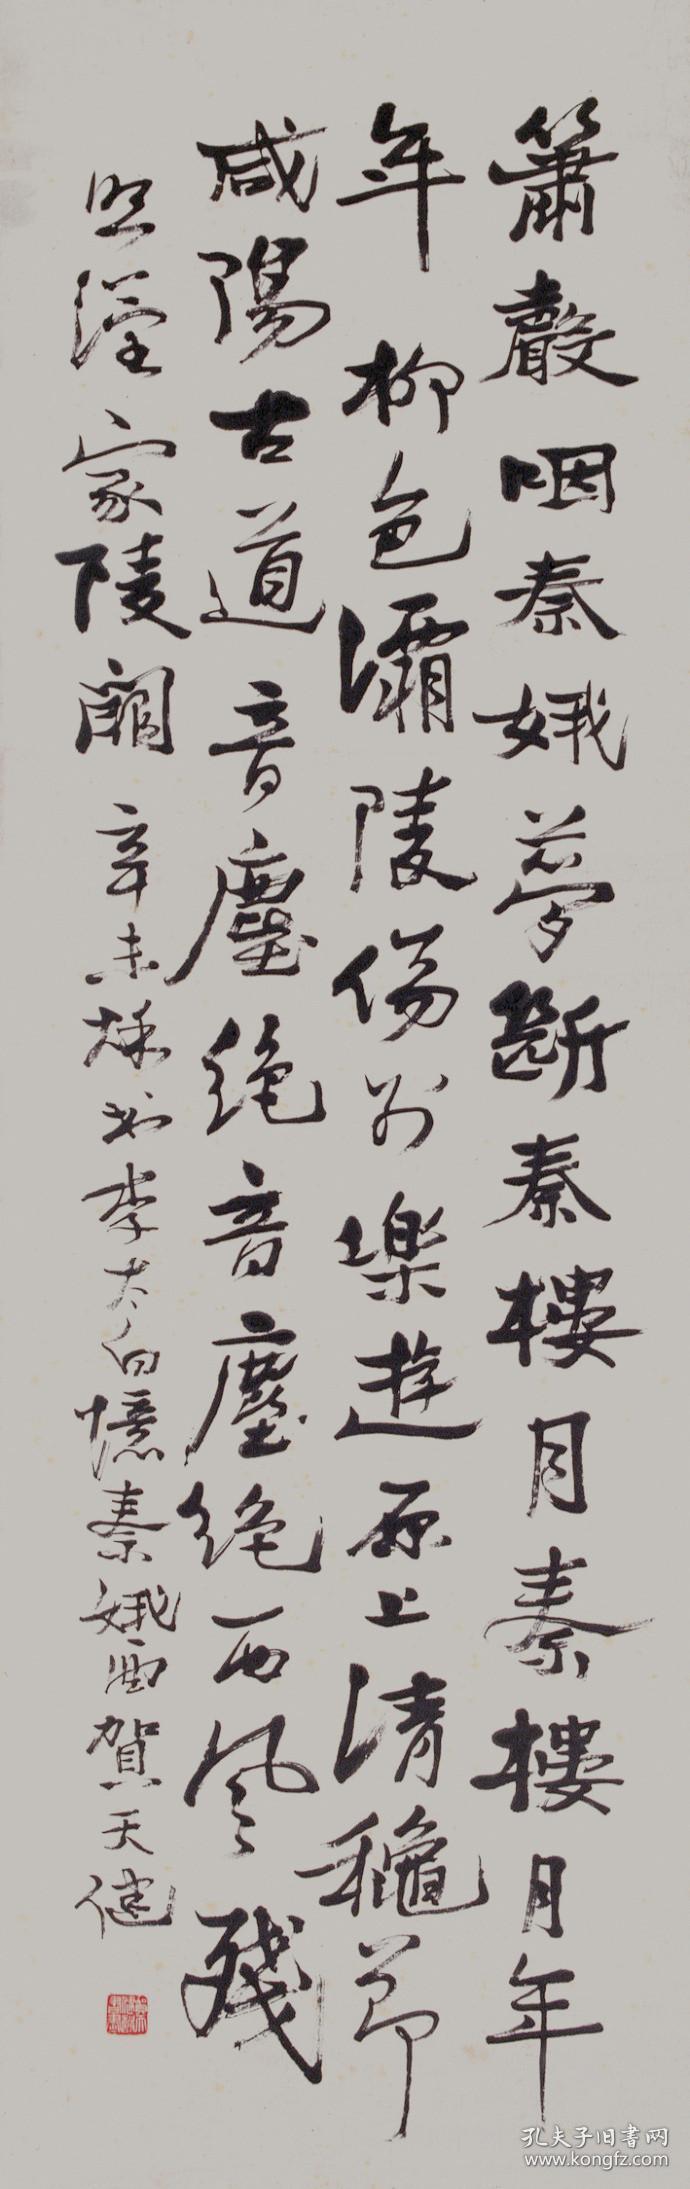 簫聲咽秦娥夢斷秦樓月秦樓月年
年 柳色灞陵傷別樂遊原上清龝節
咸陽古道音塵絕音塵絕西風殘
照漢家陵闕 辛未秌書李太白憶秦娥 賀天健
孔夫子旧書网
www.kongfz.com